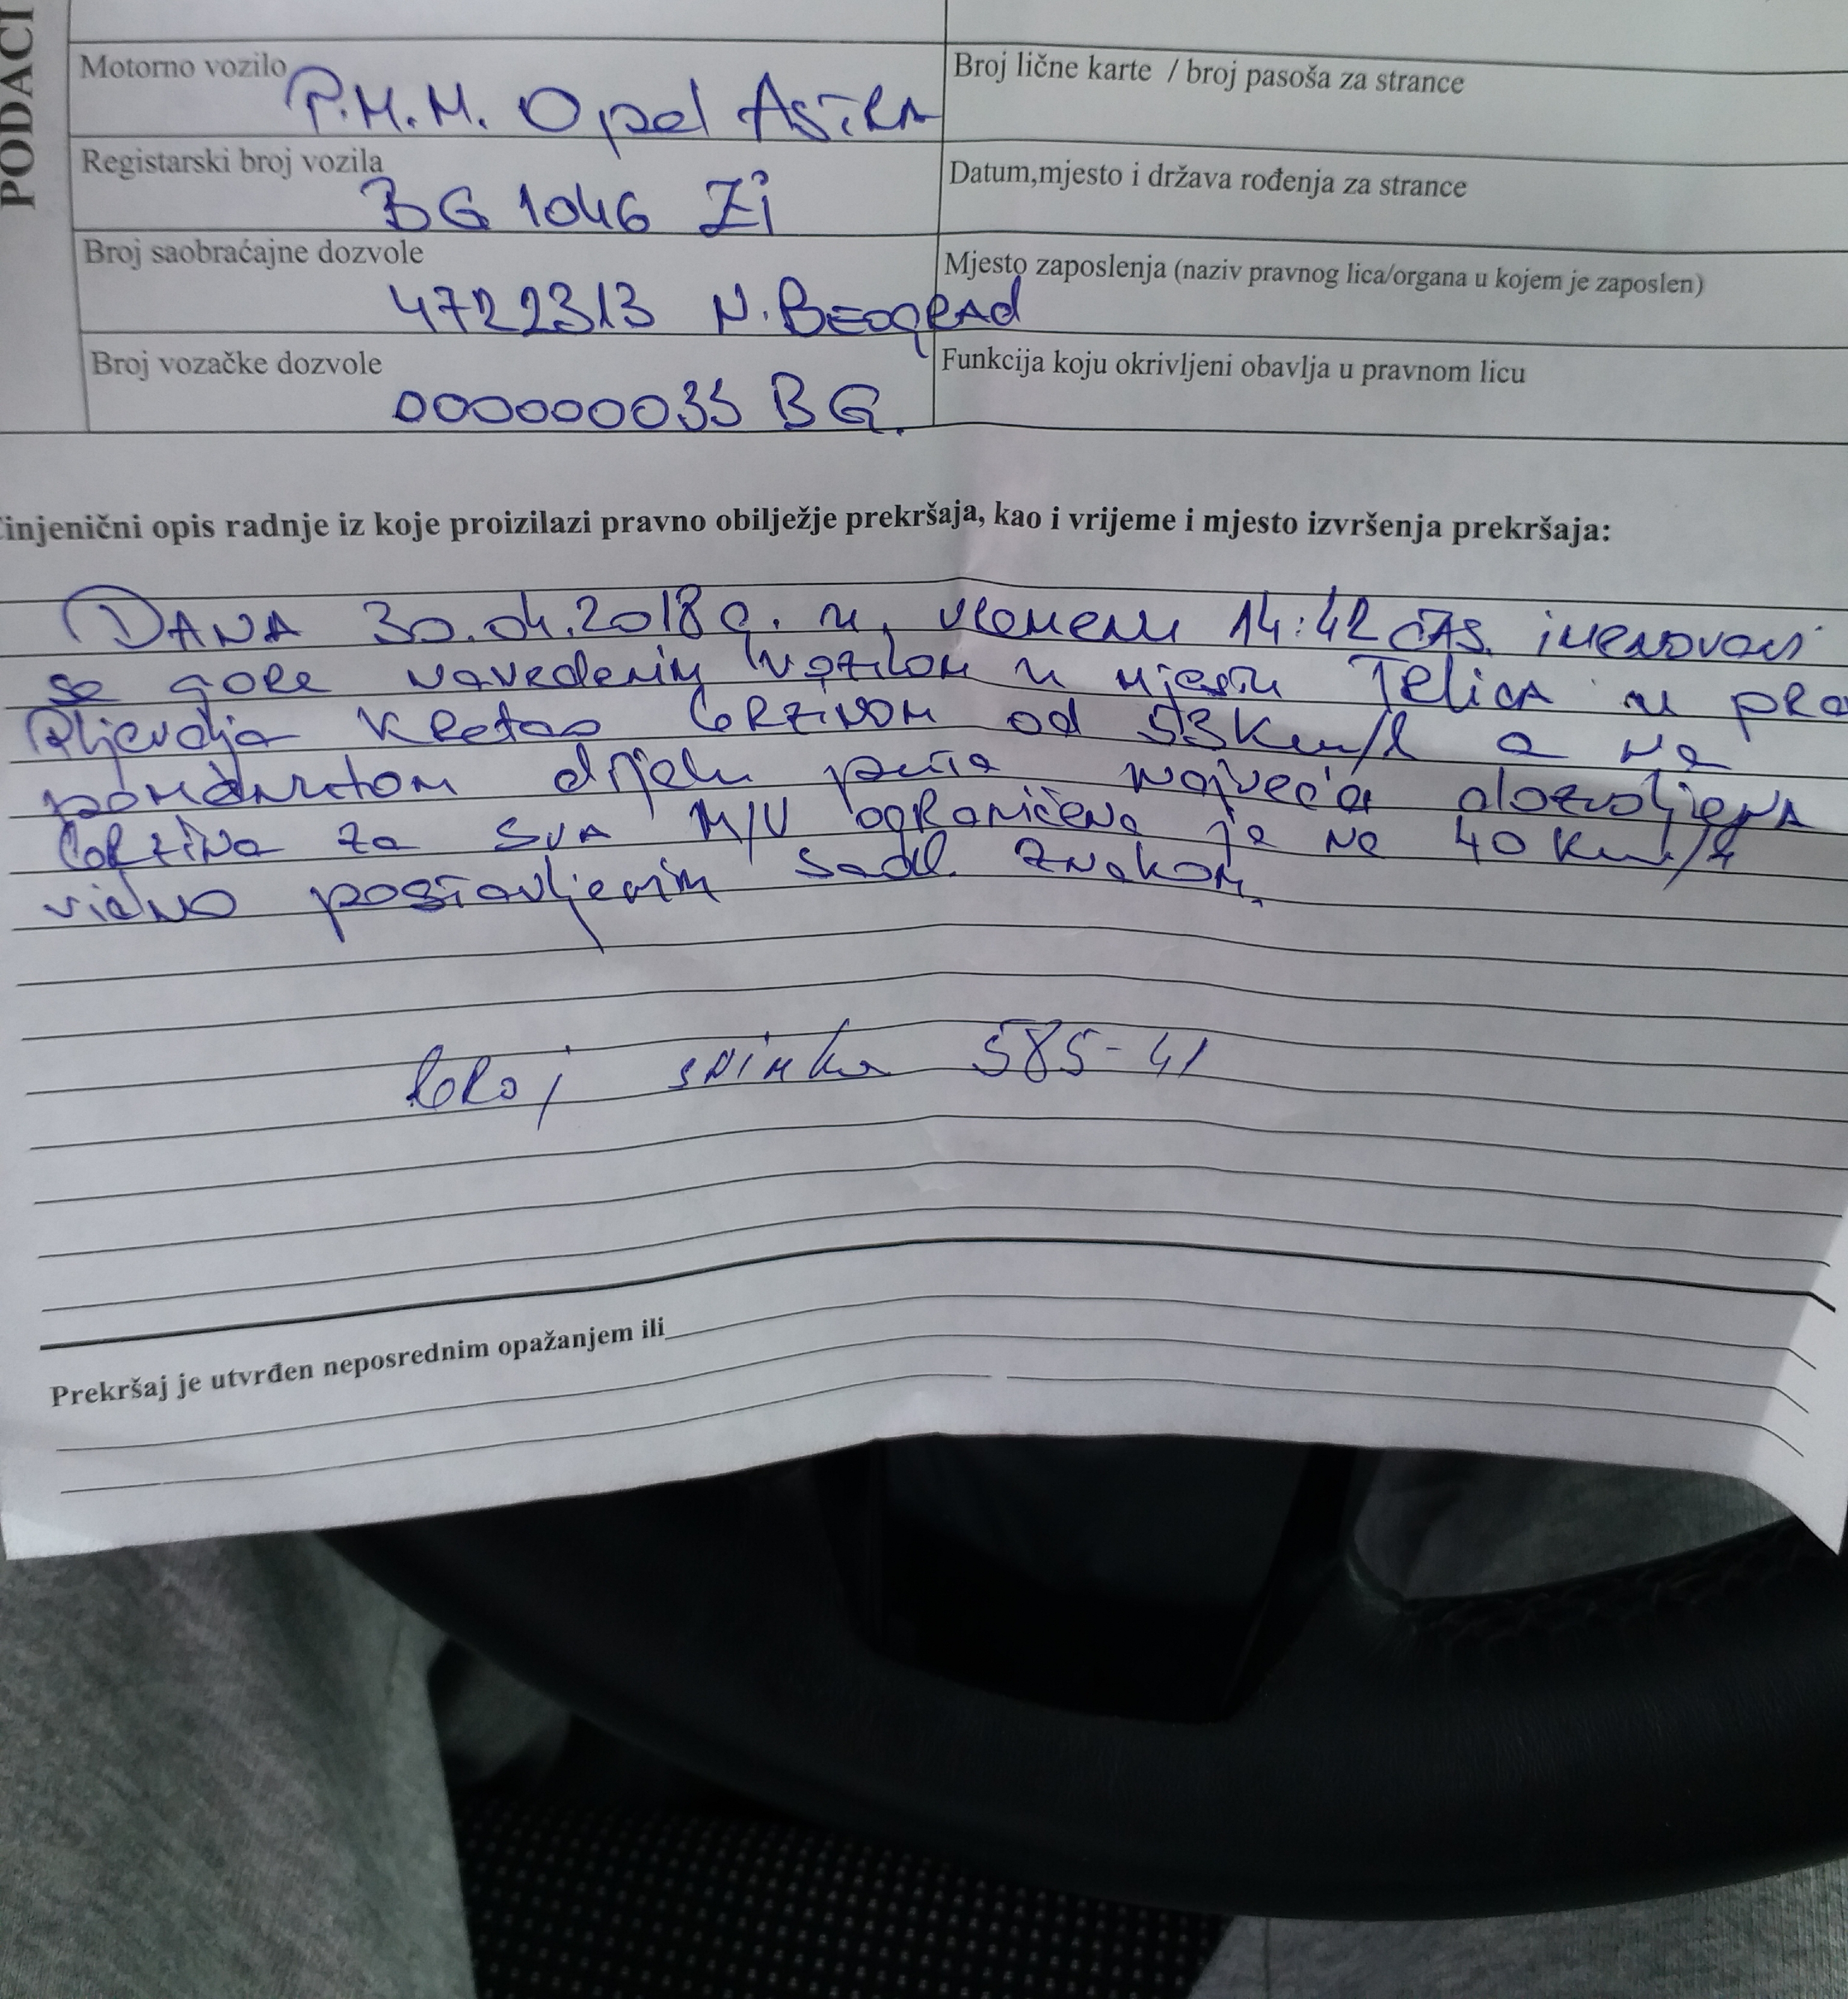 PODACI
Motorno vozilo P.M.M. Opel Astra
Broj lične karte / broj pasoša za strance
Registarski broj vozila BG 1046 Zi
Datum,mjesto i država rođenja za strance
Broj saobraćajne dozvole 4722313 N. Beograd
Mjesto zaposlenja (naziv pravnog lica/organa u kojem je zaposlen)
Broj vozačke dozvole 000000033 BG.
Funkcija koju okrivljeni obavlja u pravnom licu
injenični opis radnje iz koje proizilazi pravno obilježje prekršaja, kao i vrijeme i mjesto izvršenja prekršaja:
Dana 30.04.2018 g. u vremenu 14:42 čas. imenovani
se gore navedenim vozilom u mjestu
Pljevlja kretao brzinom od 53 km/h a na
dijelu puta najveća dozvoljena
brzina za sva M/V ograničena je na 40 km/h
vidno postavljenim znakom.
broj snimka 585-41
Prekršaj je utvrđen neposrednim opažanjem ili